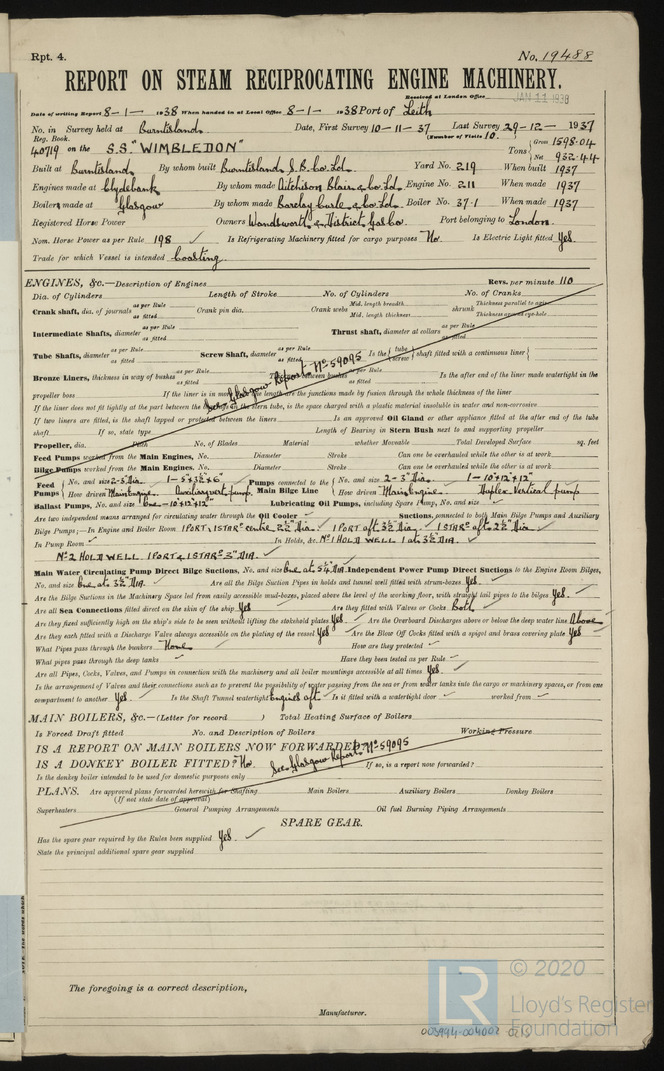 Rpt. 4. No. 19488
REPORT ON STEAM RECIPROCATING ENGINE MACHINERY.
Received at London Office JAN 11 1938
Date of writing Report 8-1- 1938 When handed in at Local Office 8-1- 1938 Port of Leith
No. in Survey held at Burntisland. Date, First Survey 10-11-37 Last Survey 29-12- 1937
Reg. Book. (Number of Visits 10.
40719 on the S.S. "WIMBLEDON" Tons { Gross 1598.04 Net 932.44
Built at Burntisland By whom built Burntisland S.B. Co. Ld. Yard No. 219 When built 1937
Engines made at Clydebank By whom made Aitchison Blair & Co. Ld. Engine No. 211 When made 1937
Boilers made at Glasgow By whom made Barclay Curle & Co. Ld. Boiler No. 37-1 When made 1937
Registered Horse Power Owners Wandsworth & District Gas Co. Port belonging to London
Nom. Horse Power as per Rule 198 Is Refrigerating Machinery fitted for cargo purposes No. Is Electric Light fitted Yes.
Trade for which Vessel is intended Coasting.
ENGINES, &c.—Description of Engines Revs. per minute 110
Dia. of Cylinders Length of Stroke No. of Cylinders No. of Cranks
Crank shaft, dia. of journals as per Rule as fitted Crank pin dia. Crank webs Mid. length breadth Mid. length thickness shrunk Thickness parallel to axis Thickness around eye-hole
Intermediate Shafts, diameter as per Rule as fitted Thrust shaft, diameter at collars as per Rule as fitted
Tube Shafts, diameter as per Rule as fitted Screw Shaft, diameter as per Rule as fitted Is the { tube screw } shaft fitted with a continuous liner {
See Glasgow Report No. 59095
Bronze Liners, thickness in way of bushes as per Rule as fitted Thickness between bushes as per Rule as fitted Is the after end of the liner made watertight in the
propeller boss If the liner is in more than one length are the junctions made by fusion through the whole thickness of the liner
If the liner does not fit tightly at the part between the bushes in the stern tube, is the space charged with a plastic material insoluble in water and non-corrosive
If two liners are fitted, is the shaft lapped or protected between the liners Is an approved Oil Gland or other appliance fitted at the after end of the tube
shaft If so, state type Length of Bearing in Stern Bush next to and supporting propeller
Propeller, dia. Pitch No. of Blades Material whether Moveable Total Developed Surface sq. feet
Feed Pumps worked from the Main Engines, No. Diameter Stroke Can one be overhauled while the other is at work
Bilge Pumps worked from the Main Engines, No. Diameter Stroke Can one be overhauled while the other is at work
Feed Pumps { No. and size 2-3" Dia. 1-5"×3½"×6" Pumps connected to the Main Bilge Line { No. and size 2-3" Dia. 1-10"×12"×12"
How driven Main Engine. Auxiliary vert. pump. How driven Main Engine. Duplex Vertical pump
Ballast Pumps, No. and size One - 10"×12"×12" Lubricating Oil Pumps, including Spare Pump, No. and size
Are two independent means arranged for circulating water through the Oil Cooler Suctions, connected to both Main Bilge Pumps and Auxiliary
Bilge Pumps;—In Engine and Boiler Room 1 PORT, 1 STARD centre 2½" dia. 1 PORT aft 3½" dia. 1 STARD aft 2½" dia.
In Pump Room In Holds, &c. No. 1 HOLD WELL 1 at 3½" DIA.
No. 2 HOLD WELL 1 PORT & 1 STARD 3" DIA.
Main Water Circulating Pump Direct Bilge Suctions, No. and size One at 5¼" DIA. Independent Power Pump Direct Suctions to the Engine Room Bilges,
No. and size One at 3½" DIA. Are all the Bilge Suction Pipes in holds and tunnel well fitted with strum-boxes Yes.
Are the Bilge Suctions in the Machinery Space led from easily accessible mud-boxes, placed above the level of the working floor, with straight tail pipes to the bilges Yes.
Are all Sea Connections fitted direct on the skin of the ship Yes Are they fitted with Valves or Cocks both
Are they fixed sufficiently high on the ship's side to be seen without lifting the stokehold plates Yes Are the Overboard Discharges above or below the deep water line Above
Are they each fitted with a Discharge Valve always accessible on the plating of the vessel Yes Are the Blow Off Cocks fitted with a spigot and brass covering plate Yes
What Pipes pass through the bunkers None How are they protected
What pipes pass through the deep tanks Have they been tested as per Rule
Are all Pipes, Cocks, Valves, and Pumps in connection with the machinery and all boiler mountings accessible at all times Yes.
Is the arrangement of Valves and their connections such as to prevent the possibility of water passing from the sea or from water tanks into the cargo or machinery spaces, or from one
compartment to another Yes. Is the Shaft Tunnel watertight Engines aft. Is it fitted with a watertight door worked from
MAIN BOILERS, &c.—(Letter for record ) Total Heating Surface of Boilers
Is Forced Draft fitted No. and Description of Boilers Working Pressure
IS A REPORT ON MAIN BOILERS NOW FORWARDED?
See Glasgow Report No. 59095
IS A DONKEY BOILER FITTED? No. If so, is a report now forwarded?
Is the donkey boiler intended to be used for domestic purposes only
PLANS. Are approved plans forwarded herewith for Shafting Main Boilers Auxiliary Boilers Donkey Boilers
(If not state date of approval)
Superheaters General Pumping Arrangements Oil fuel Burning Piping Arrangements
SPARE GEAR.
Has the spare gear required by the Rules been supplied Yes.
State the principal additional spare gear supplied
The foregoing is a correct description,
Manufacturer.
© 2020
LR
Lloyd's Register
Foundation